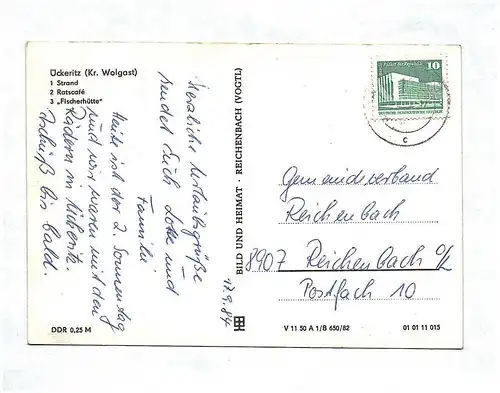 Ückeritz (Kr. Wolgast)
1 Strand
2 Ratscafé
3 „Fischerhütte"
Herzliche Urlaubsgrüße
sendet Euch Lotte und
Familie
Heute ist der 2. Sonnentag
und wir waren mit den
Rädern in Ückeritz.
Tschüß bis bald.
12.9.84
BILD UND HEIMAT · REICHENBACH (VOGTL)
10
Palast der Republik
DEUTSCHE DEMOKRATISCHE REPUBLIK
c
Gemeindeverband
Reichenbach
8907 Reichenbach O/L
Postfach 10
DDR 0,25 M
V 11 50 A 1/B 650/82
01 01 11 015